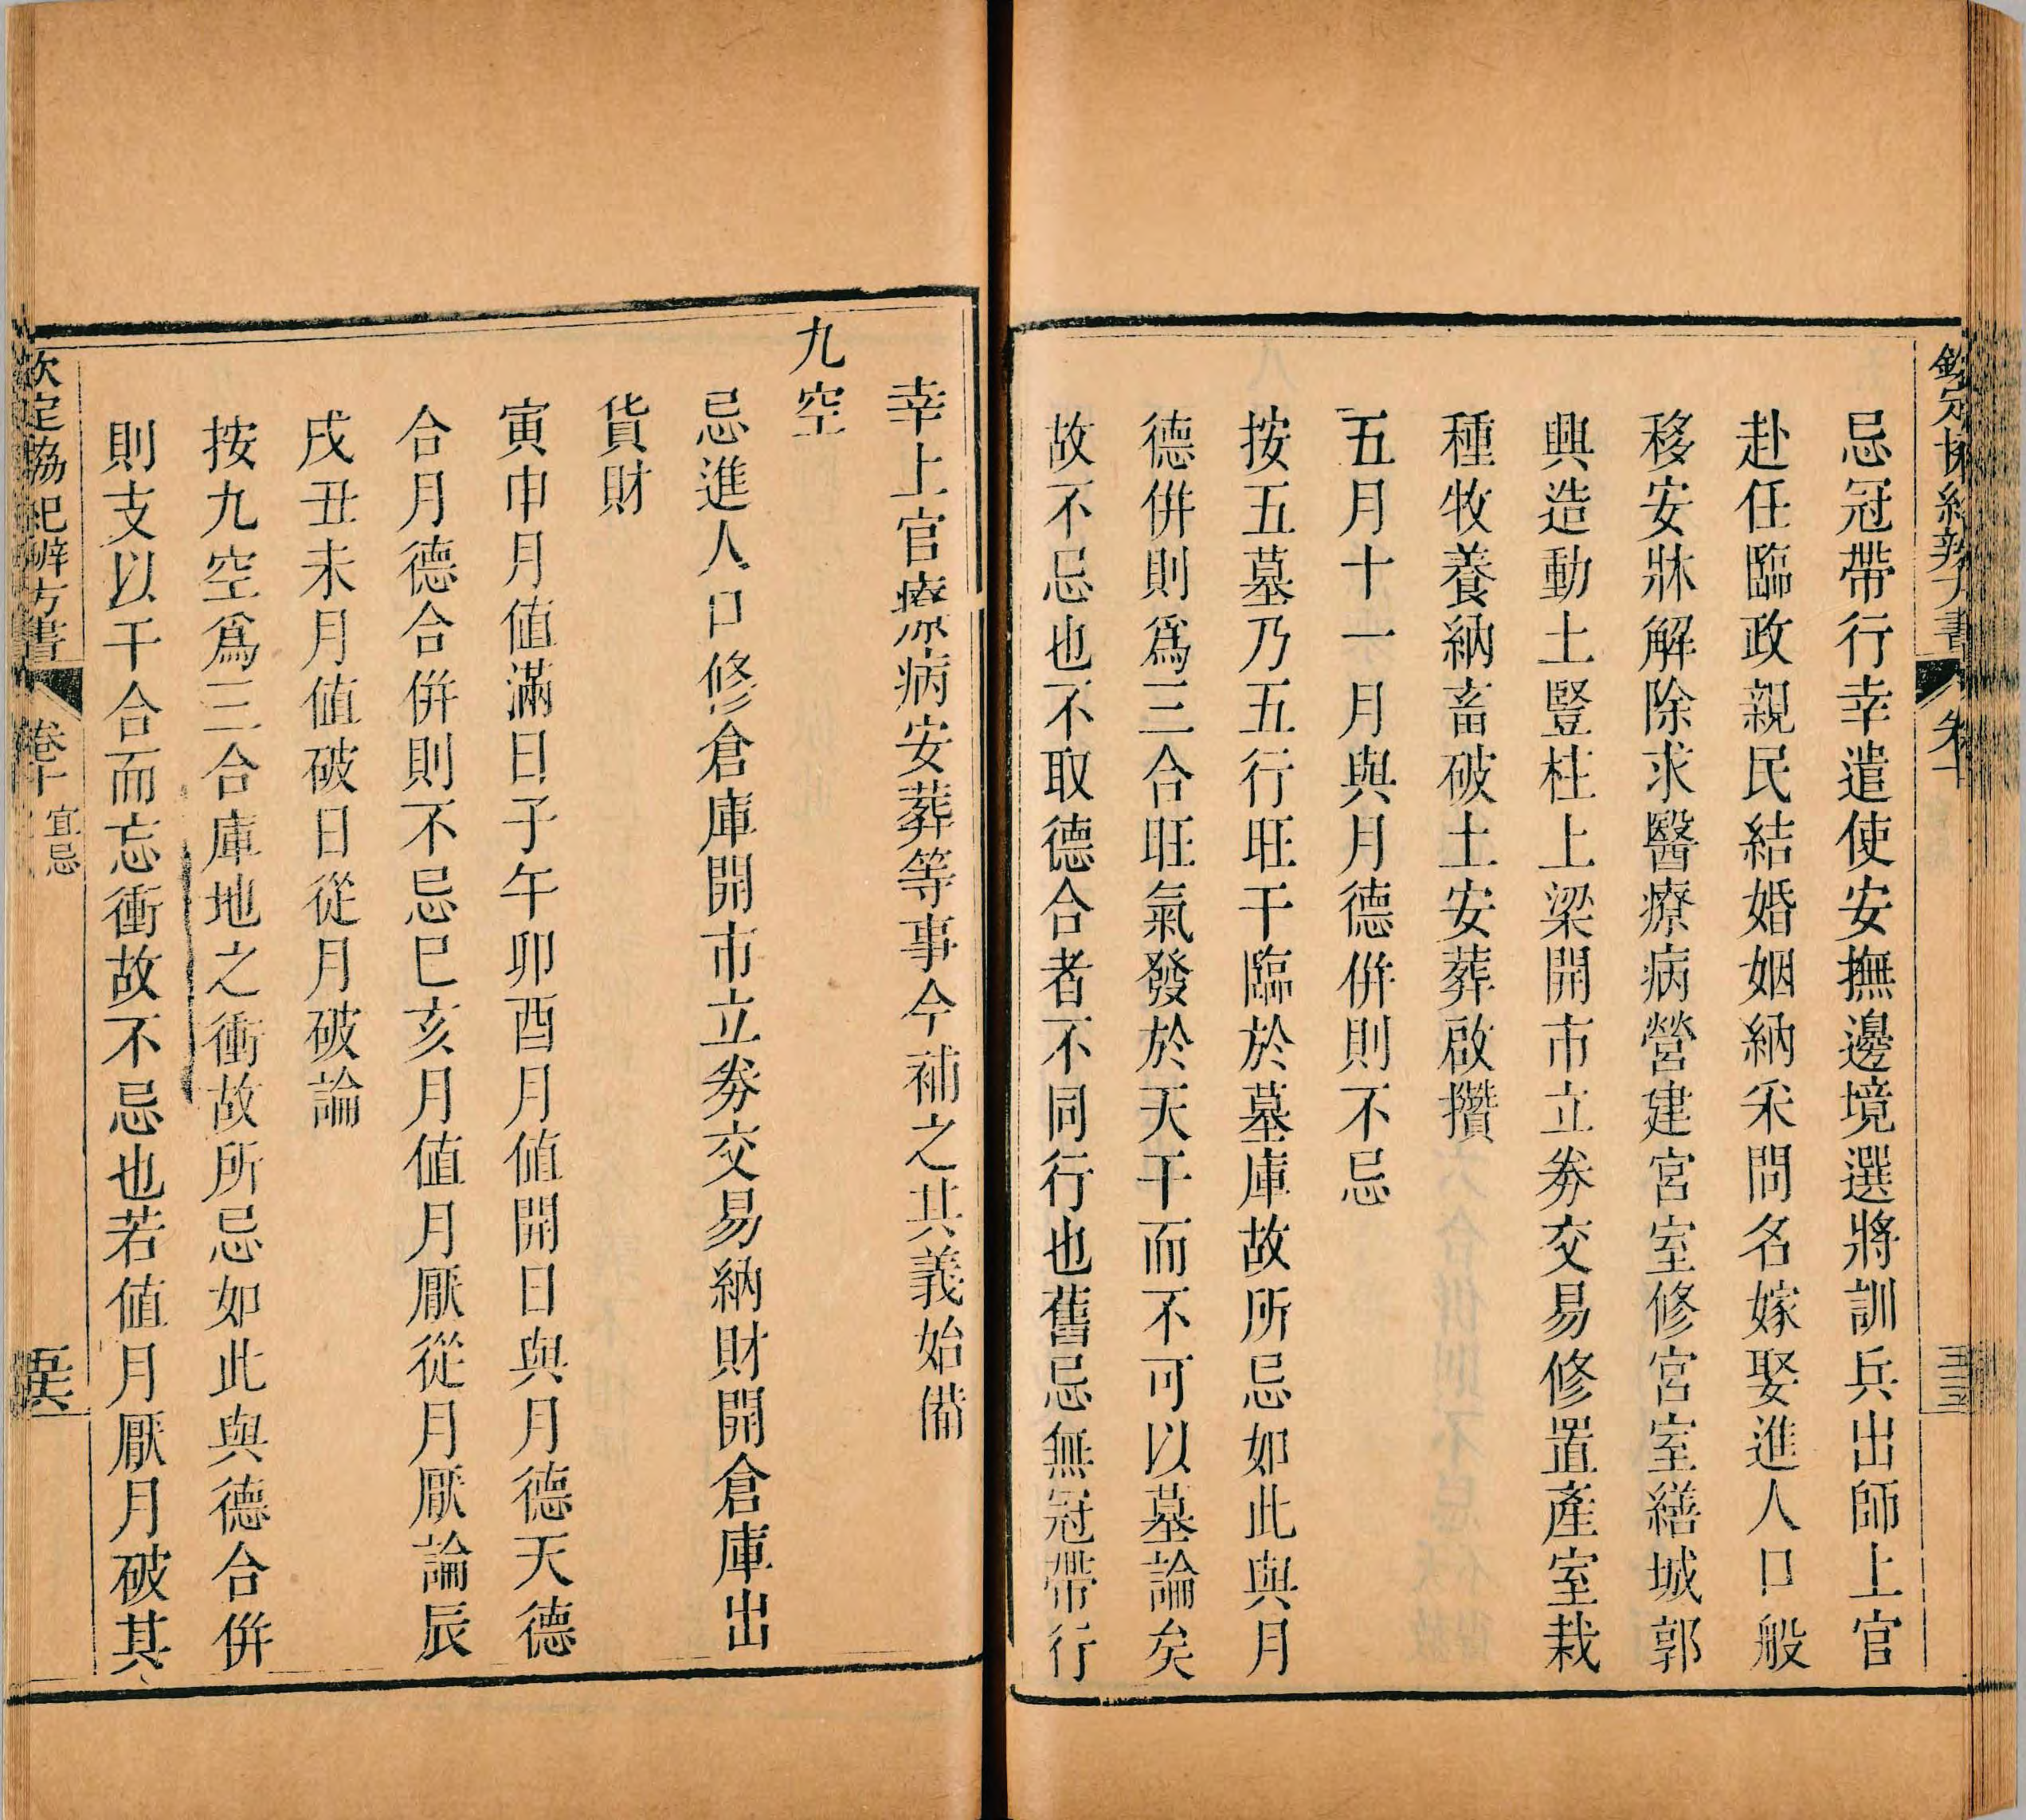 忌冠帶行幸遣使安撫邊境選將訓兵出師上官
赴任臨政親民結婚姻納采問名嫁娶進人口般
移安牀解除求醫療病營建宮室修宮室繕城郭
興造動土豎柱上梁開市立劵交易修置產室栽
種牧養納畜破土安葬啟攢
五月十一月與月德併則不忌
按五墓乃五行旺干臨於墓庫故所忌如此與月
德併則爲三合旺氣發於天干而不可以墓論矣
故不忌也不取德合者不同行也舊忌無冠帶行
幸上官療病安葬等事今補之其義始備
九空
忌進人口修倉庫開市立劵交易納財開倉庫出
貨財
寅申月値滿日子午卯酉月値開日與月德天德
合月德合併則不忌巳亥月値月厭從月厭論辰
戌丑未月値破日從月破論
按九空爲三合庫地之衝故所忌如此與德合併
則支以干合而忘衝故不忌也若値月厭月破其
欽定協紀辨方書
卷十
宜忌